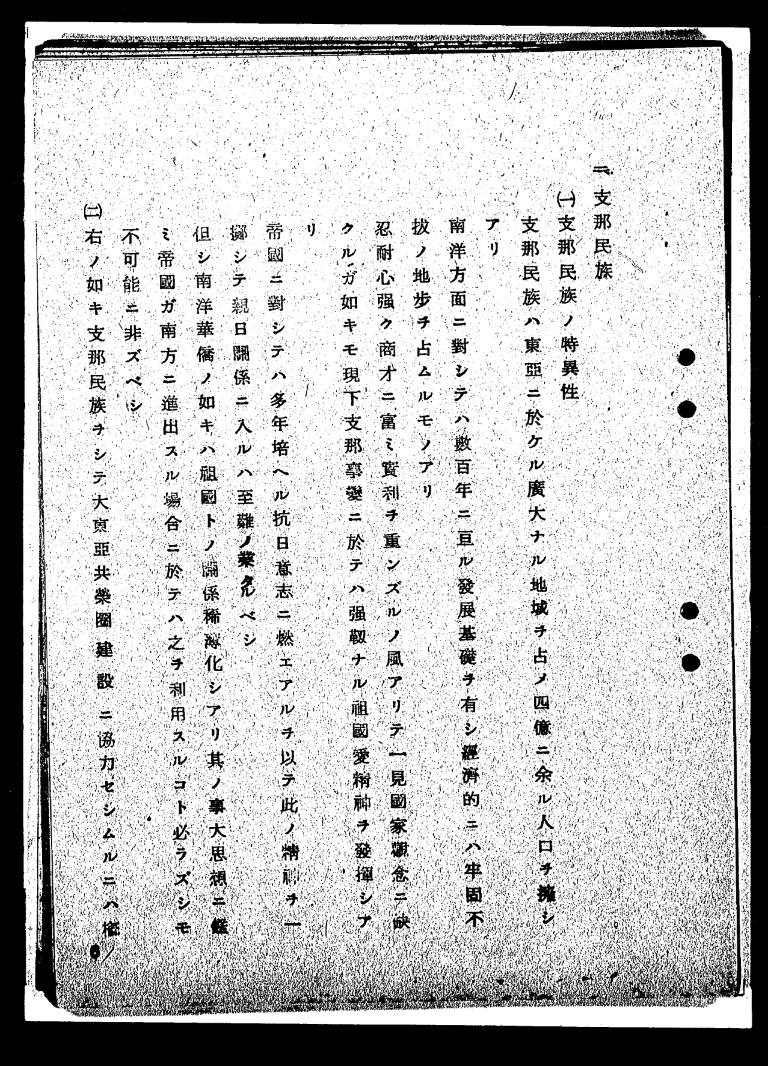 二、支那民族
㈠支那民族ノ特異性
支那民族ハ東亞ニ於ケル廣大ナル地域ヲ占メ四億ニ余ル人口ヲ擁シ
アリ
南洋方面ニ對シテハ數百年ニ亘ル發展基礎ヲ有シ經濟的ニハ牢固不
拔ノ地步ヲ占ムルモノアリ
忍耐心强ク商才ニ富ミ實利ヲ重ンズルノ風アリテ一見國家觀念ニ缺
クルガ如キモ現下支那事變ニ於テハ强靱ナル祖國愛精神ヲ發揮シア
リ
帝國ニ對シテハ多年培ヘル抗日意志ニ燃エアルヲ以テ此ノ精神ヲ一
擲シテ親日關係ニ入ルハ至難ノ業タルベシ
但シ南洋華僑ノ如キハ祖國トノ關係稀薄化シアリ其ノ事大思想ニ鑑
ミ帝國ガ南方ニ進出スル場合ニ於テハ之ヲ利用スルコト必ラズシモ
不可能ニ非ズベシ
㈡右ノ如キ支那民族ヲシテ大東亞共榮圈建設ニ協力セシムルニハ
6